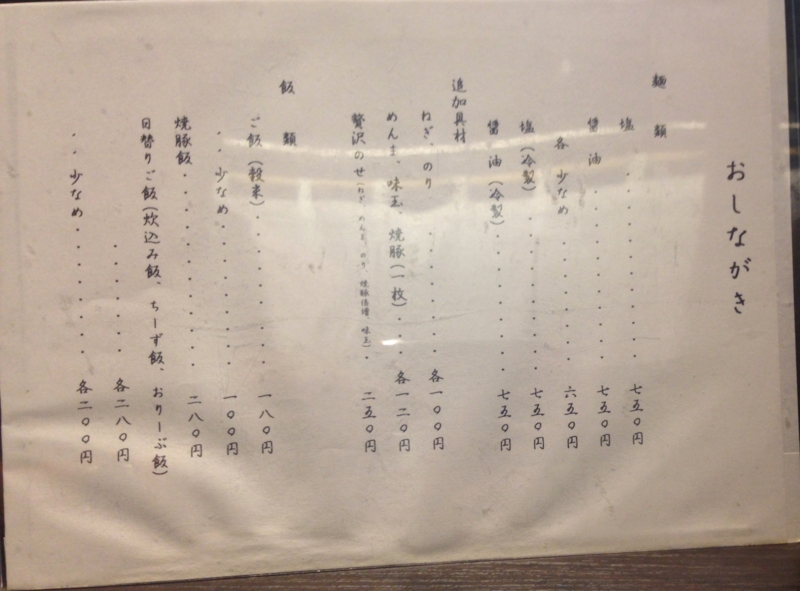 おしながき
麺類
塩・・・・・・・・・七五〇円
醤油・・・・・・・・・七五〇円
各少なめ・・・・・・・六五〇円
塩(冷製)・・・・・・・七五〇円
醤油(冷製)・・・・・・七五〇円
追加具材
ねぎ、のり・・・・・・・各一〇〇円
めんま、味玉、焼豚(一枚)・・・各一二〇円
贅沢のせ(ねぎ、めんま、のり、焼豚倍増、味玉)・・二五〇円
飯類
ご飯(穀米)・・・・・・・一八〇円
・・少なめ・・・・・・・一〇〇円
焼豚飯・・・・・・・・・二八〇円
日替りご飯(炊込み飯、ちーず飯、おりーぶ飯)
・・・・・・各二八〇円
・・少なめ・・・・・・・各二〇〇円